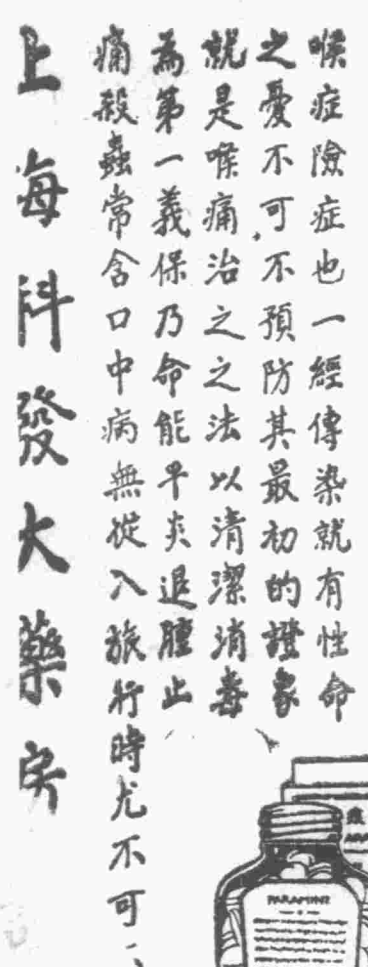 喉症險症也一經傳染就有性命
之憂不可不預防其最初的證象
就是喉痛治之之法以清潔消毒
為第一義保乃命能平炎退腫止
痛殺蟲常含口中病無從入旅行時尤不可
上海科發大藥房
PARAMINT